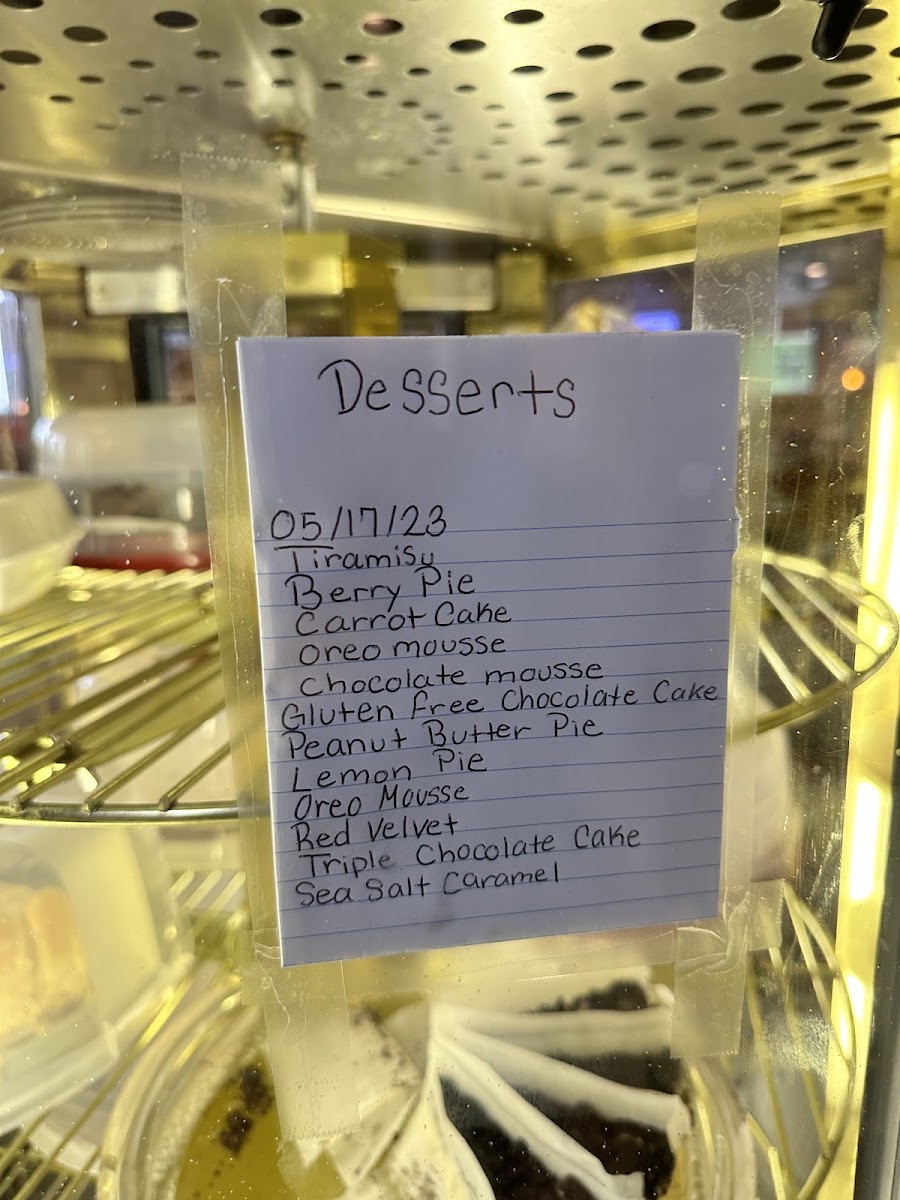 Desserts
05/17/23
Tiramisu
Berry Pie
Carrot Cake
Oreo mousse
Chocolate mousse
Gluten free Chocolate Cake
Peanut Butter Pie
Lemon Pie
Oreo Mousse
Red Velvet
Triple Chocolate Cake
Sea Salt Caramel